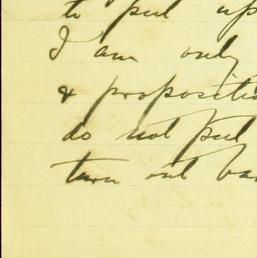 to put up
I am only
& propositio
do not put
turn out ba